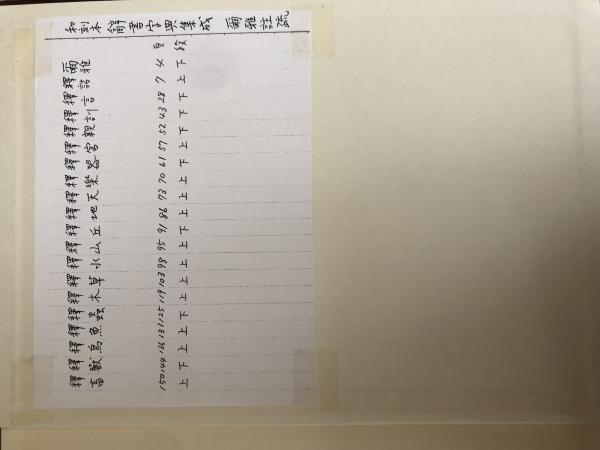 和刻本辞書字典集成 爾雅註疏
頁 段
爾雅 4 下
釋詁 7 上
釋言 28 下
釋訓 43 下
釋親 52 下
釋宮 57 下
釋器 61 下
釋樂 70 上
釋天 73 上
釋地 86 上
釋丘 91 上
釋山 95 上
釋水 98 下
釋草 103 上
釋木 119 上
釋蟲 125 下
釋魚 131 上
釋鳥 136 上
釋獸 144 下
釋畜 150 上